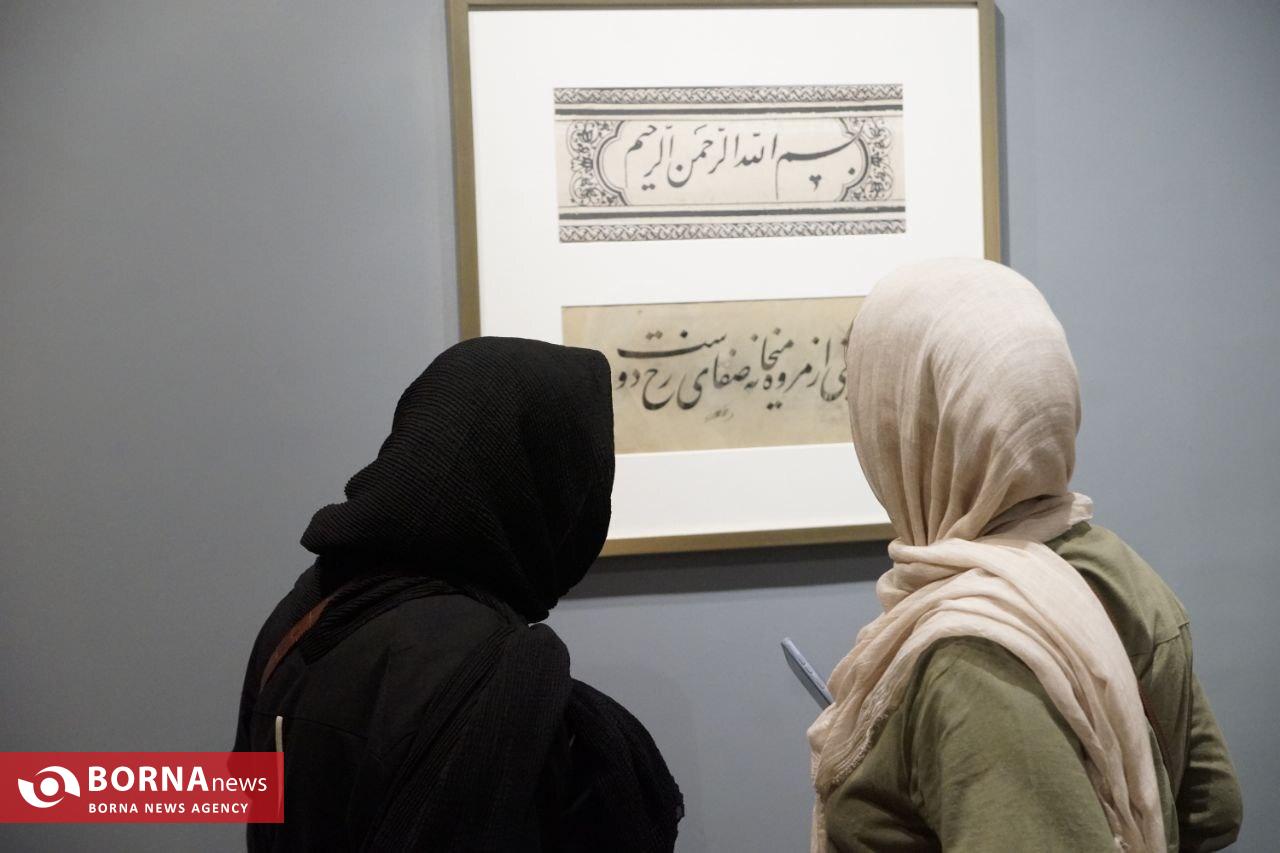 بسم الله الرحمن الرحیم
از مروه میخانه صفای رخ دوست
BORNAnews
BORNA NEWS AGENCY